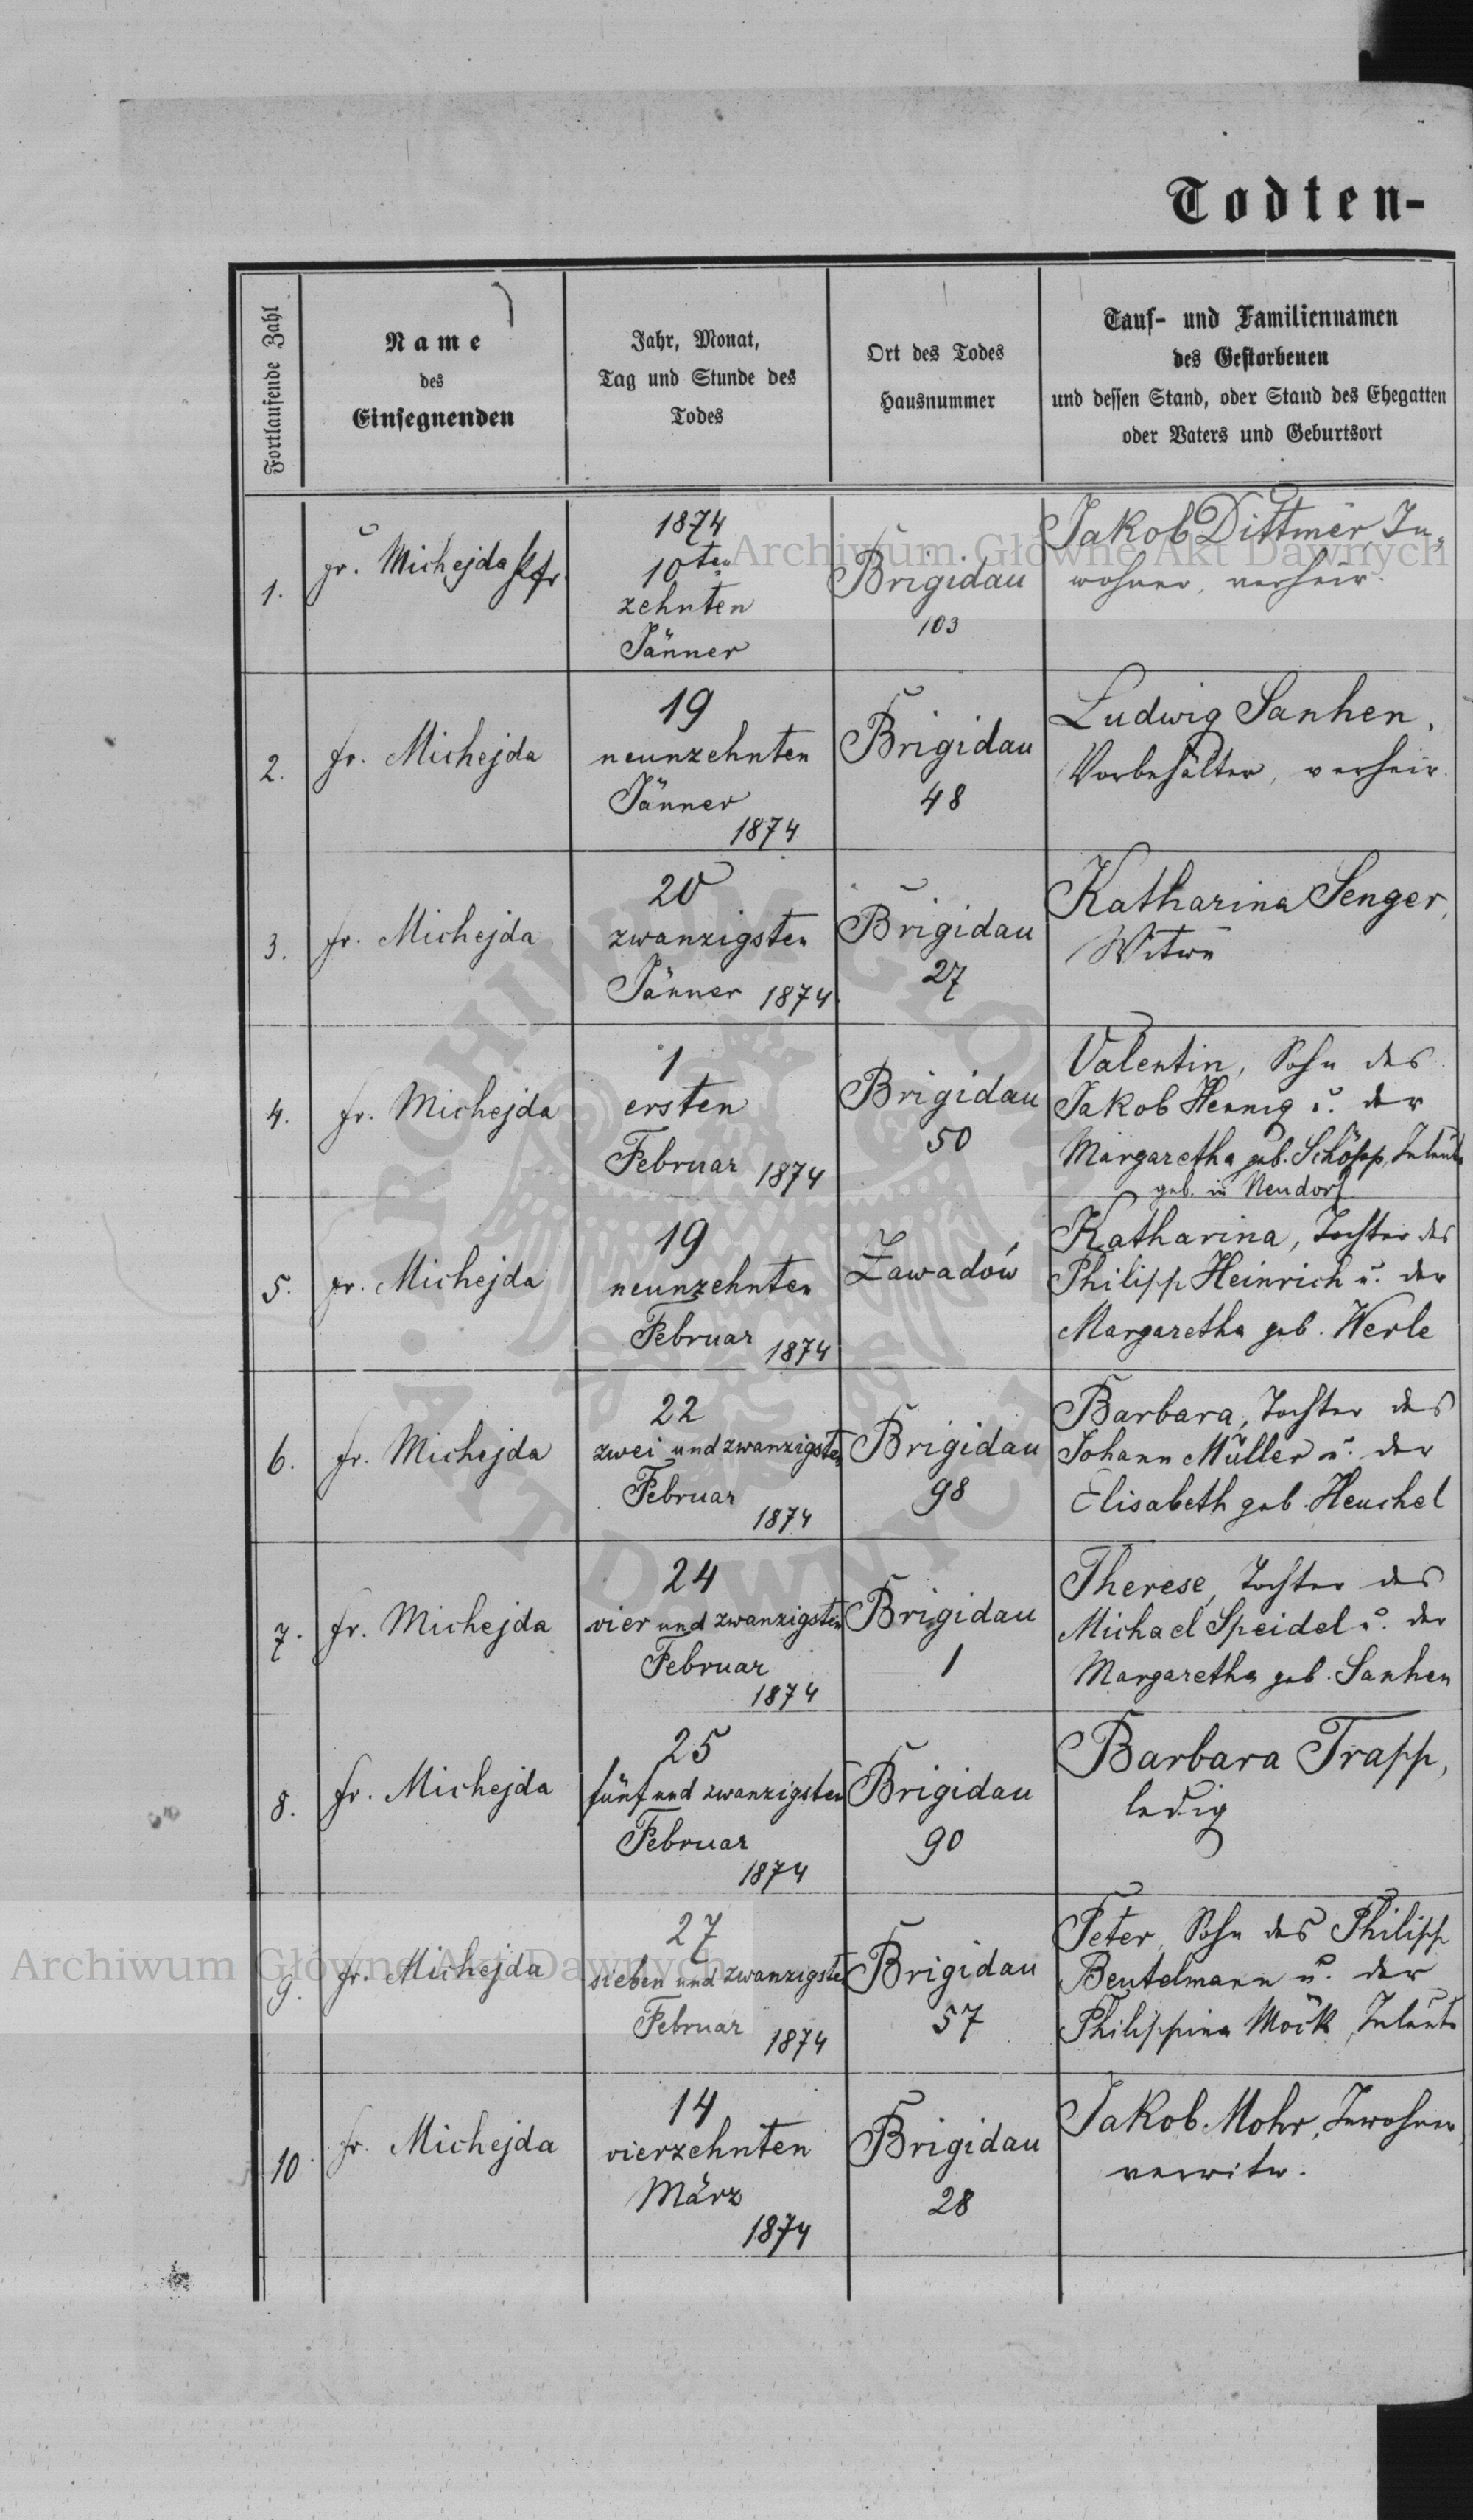 Todten-
Fortlaufende Zahl
Name
des
Einsegnenden
Jahr, Monat,
Tag und Stunde des
Todes
Ort des Todes
Hausnummer
Tauf- und Familiennamen
des Gestorbenen
und dessen Stand, oder Stand des Ehegatten
oder Vaters und Geburtsort
1.
fr. Michejda Pfr.
1874
10ten
zehnten
Jänner
Brigidau
103
Jakob Dittmer, In„
wohner, verheir.
2.
fr. Michejda
19
neunzehnten
Jänner
1874
Brigidau
48
Ludwig Sanhen,
Vorbehälter, verheir.
3.
fr. Michejda
20
zwanzigsten
Jänner 1874
Brigidau
27
Katharina Senger,
Witwe
4.
fr. Michejda
1
ersten
Februar 1874
Brigidau
50
Valentin, Sohn des
Jakob Hennig u. der
Margaretha geb. Schöpp, Inleute
geb. in Neudorf
5.
fr. Michejda
19
neunzehnten
Februar 1874
Zawadów
Katharina, Tochter des
Philipp Heinrich u. der
Margaretha geb. Werle
6.
fr. Michejda
22
zwei und zwanzigsten
Februar
1874
Brigidau
98
Barbara, Tochter des
Johann Müller u. der
Elisabeth geb. Heuchel
7.
fr. Michejda
24
vier und zwanzigsten
Februar
1874
Brigidau
1
Therese, Tochter des
Michael Speidel u. der
Margaretha geb. Sanhen
8.
fr. Michejda
25
fünf und zwanzigsten
Februar
1874
Brigidau
90
Barbara Trapp,
ledig
9.
fr. Michejda
27
sieben und zwanzigsten
Februar 1874
Brigidau
57
Peter, Sohn des Philipp
Beutelmann u. der
Philippina Möck, Inleute
10.
fr. Michejda
14
vierzehnten
März
1874
Brigidau
28
Jakob Mohr, Inwohner,
verwitw.
Archiwum Główne Akt Dawnych
Archiwum Główne Akt Dawnych
ARCHIWUM GŁÓWNE AKT DAWNYCH